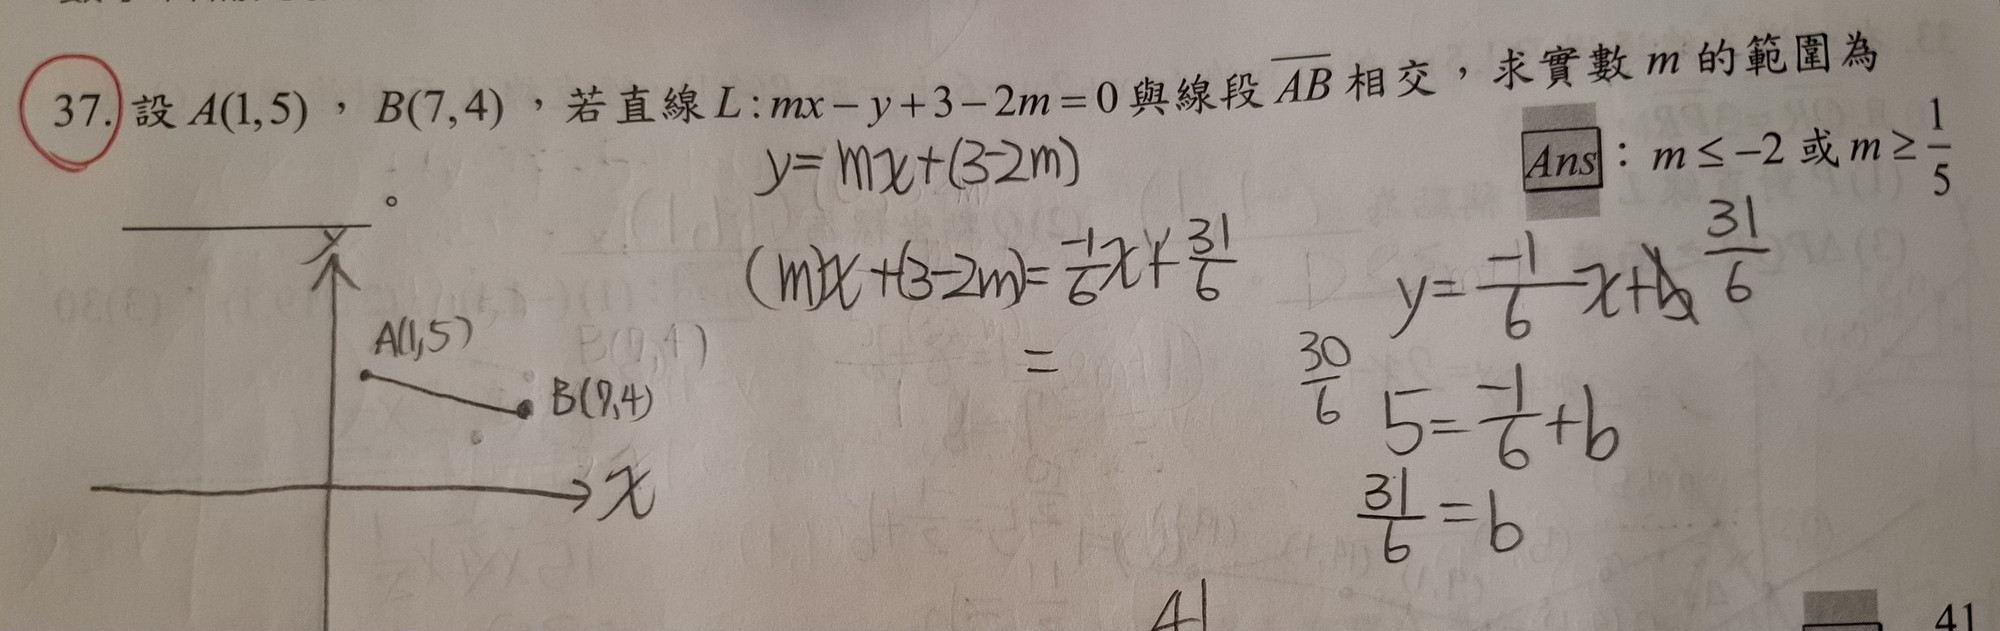 37. 設 A(1,5) ， B(7,4) ，若直線 L : mx − y + 3 − 2m = 0 與線段 \overline{AB} 相交，求實數 m 的範圍為
。
Ans : m ≤ −2 或 m ≥ 1/5
y = mx + (3-2m)
(m)x + (3-2m) = -1/6 x + 31/6
=
y = -1/6 x + 31/6
30/6
5 = -1/6 + b
31/6 = b
y
A(1,5)
B(7,4)
x
41